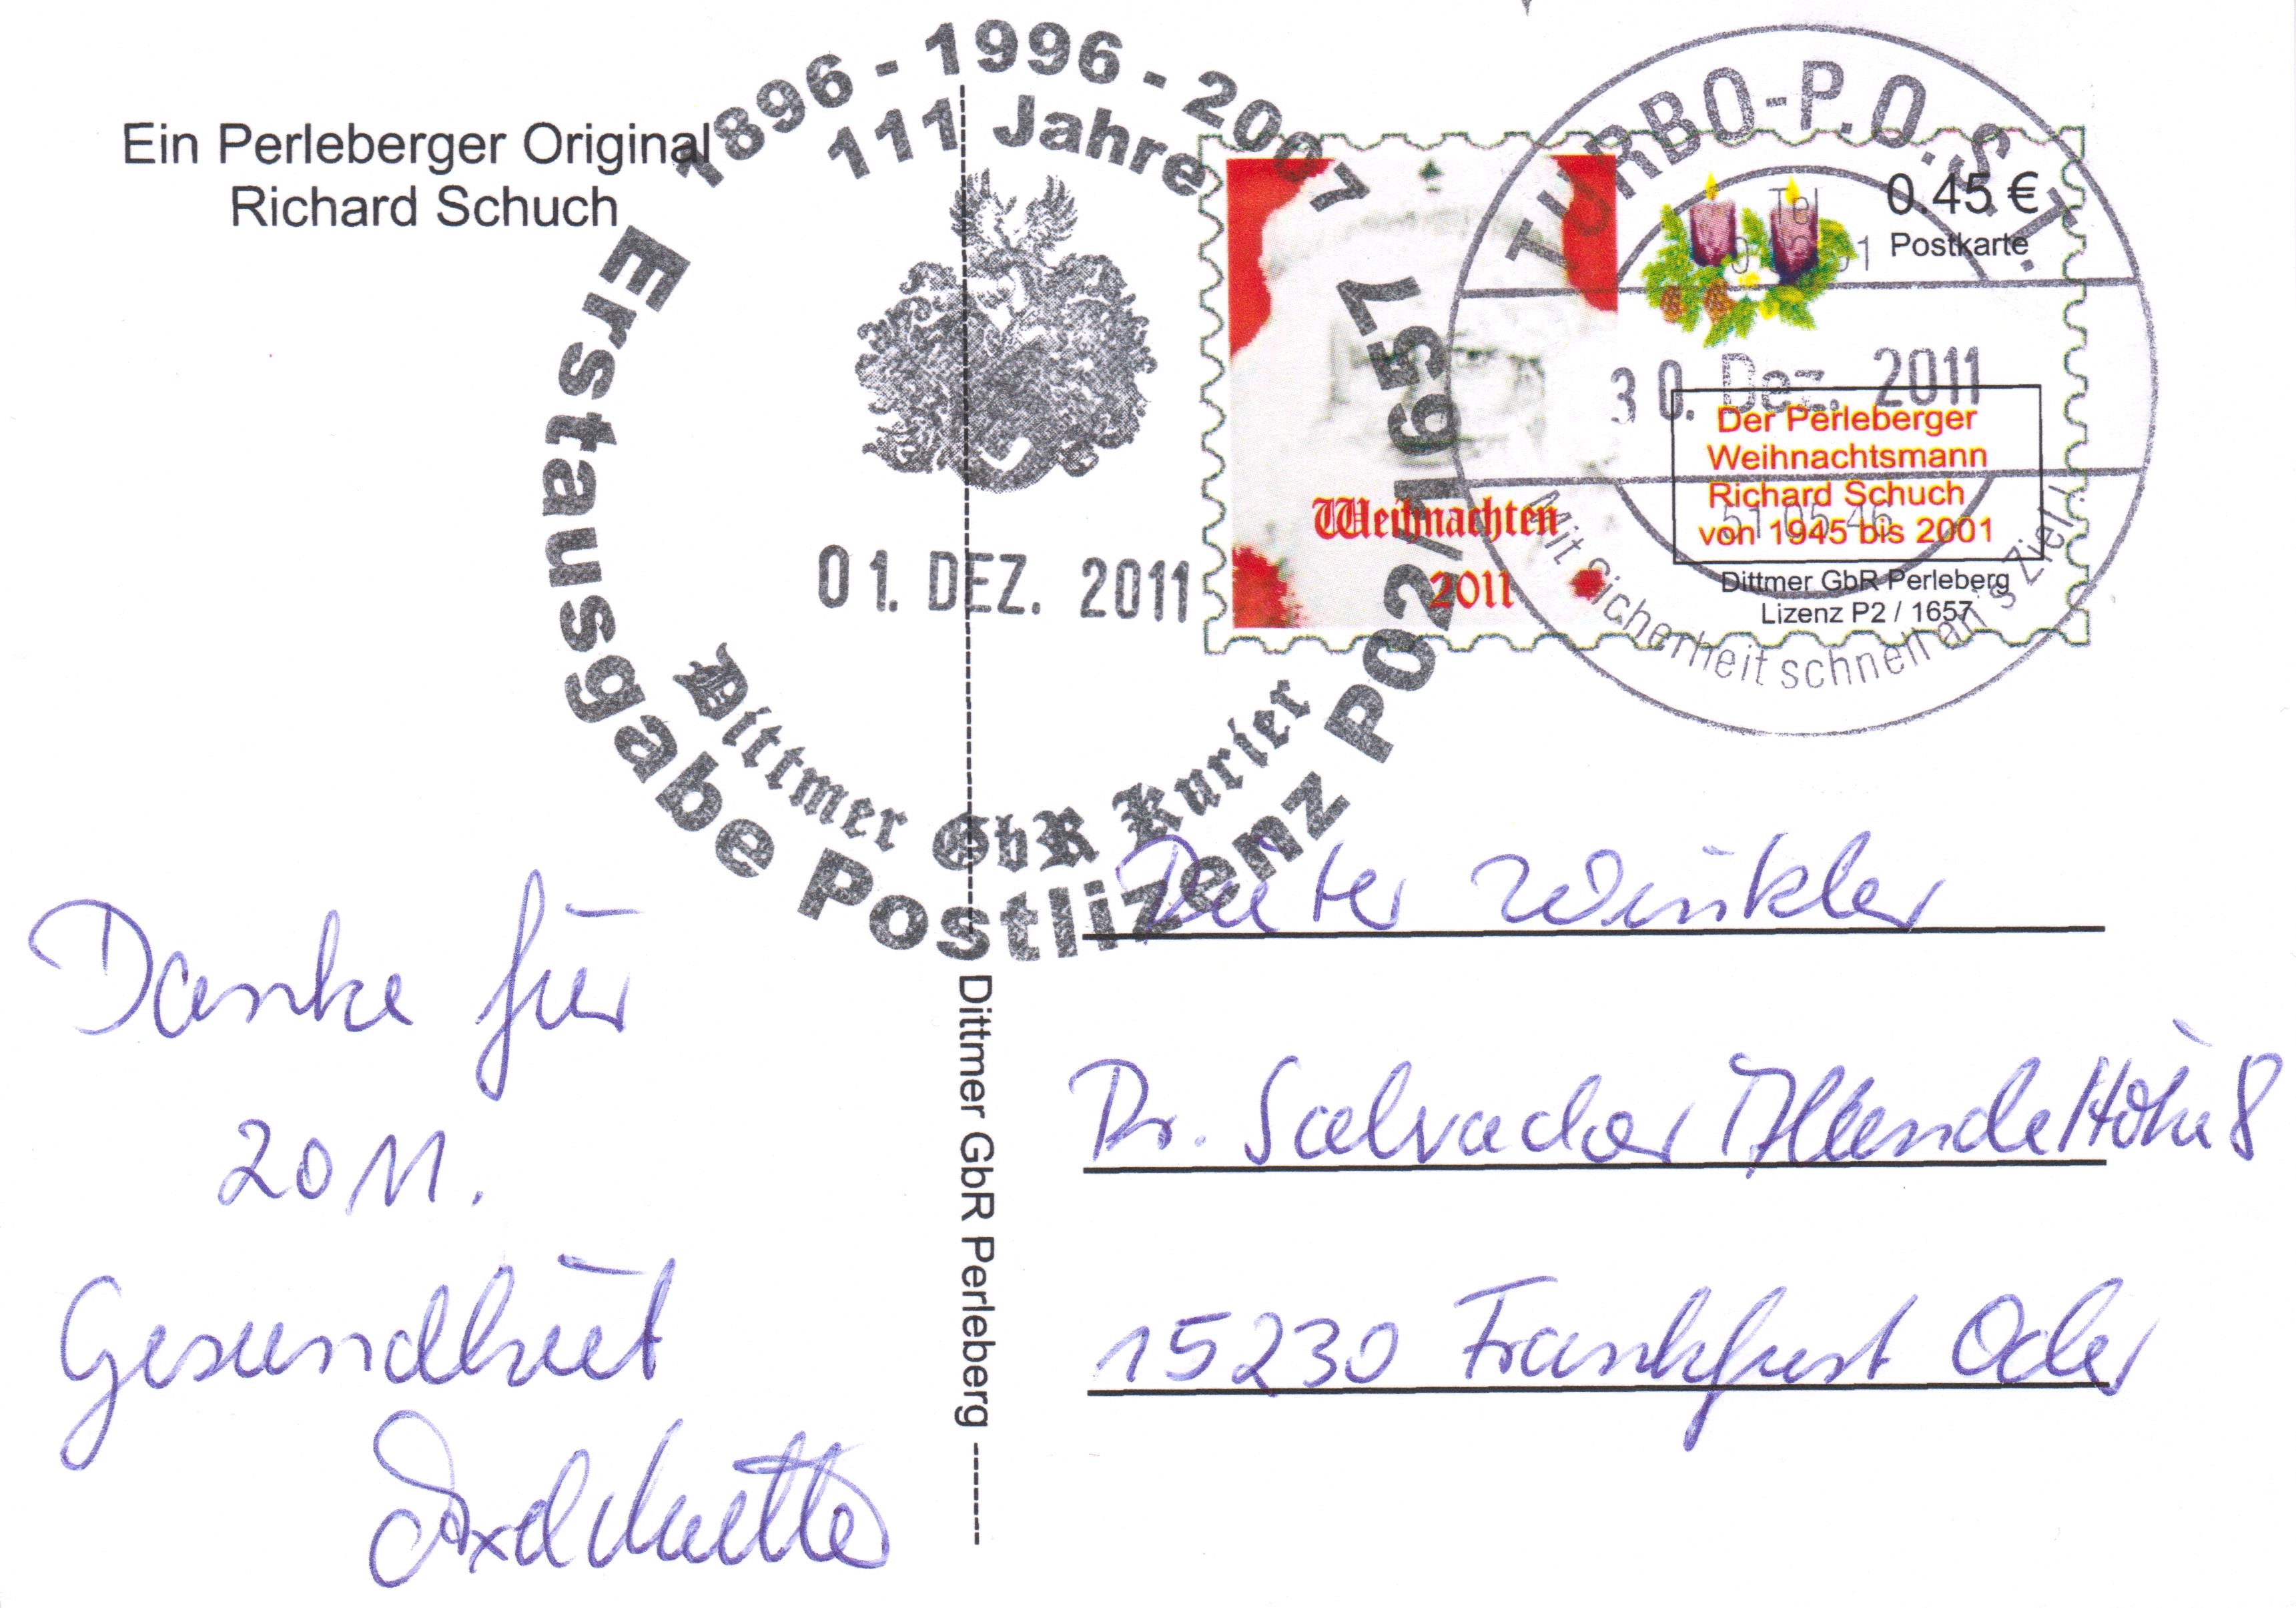 Ein Perleberger Original
Richard Schuch
1896 - 1996 - 2007
111 Jahre
Erstausgabe Postlizenz P02/1657
01. DEZ. 2011
Dittmer GbR Kurier
Weihnachten
2011
0.45 €
Postkarte
Der Perleberger
Weihnachtsmann
Richard Schuch
von 1945 bis 2001
Dittmer GbR Perleberg
Lizenz P2 / 1657
TURBO-P.O.S.T.
Tel
30. Dez. 2011
51 05 46
Mit Sicherheit schnell an's Ziel!
Dittmer GbR Perleberg
Danke für
2011.
Gesundheit
Dieter Winkler
Dr. Salvador Allende Höhe 8
15230 Frankfurt Oder